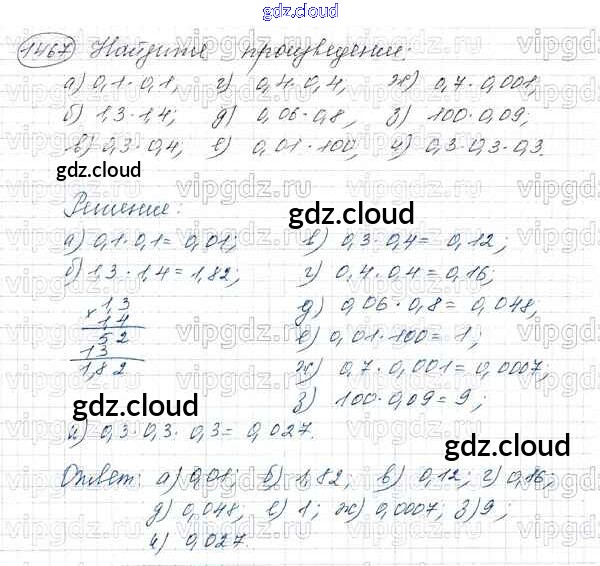 gdz.cloud
1467 Найдите произведение:
а) 0,1 · 0,1; г) 0,4 · 0,4; ж) 0,7 · 0,001;
б) 1,3 · 1,4; д) 0,06 · 0,8; з) 100 · 0,09;
в) 0,3 · 0,4; е) 0,01 · 100; и) 0,3 · 0,3 · 0,3.
gdz.cloud
Решение:
gdz.cloud
а) 0,1 · 0,1 = 0,01; в) 0,3 · 0,4 = 0,12;
б) 1,3 · 1,4 = 1,82; г) 0,4 · 0,4 = 0,16;
× 1,3
1,4
52
13
1,82
д) 0,06 · 0,8 = 0,048;
е) 0,01 · 100 = 1;
ж) 0,7 · 0,001 = 0,0007;
з) 100 · 0,09 = 9;
gdz.cloud
и) 0,3 · 0,3 · 0,3 = 0,027.
gdz.cloud
Ответ: а) 0,01; б) 1,82; в) 0,12; г) 0,16;
д) 0,048; е) 1; ж) 0,0007; з) 9;
и) 0,027.
vipgdz.ru